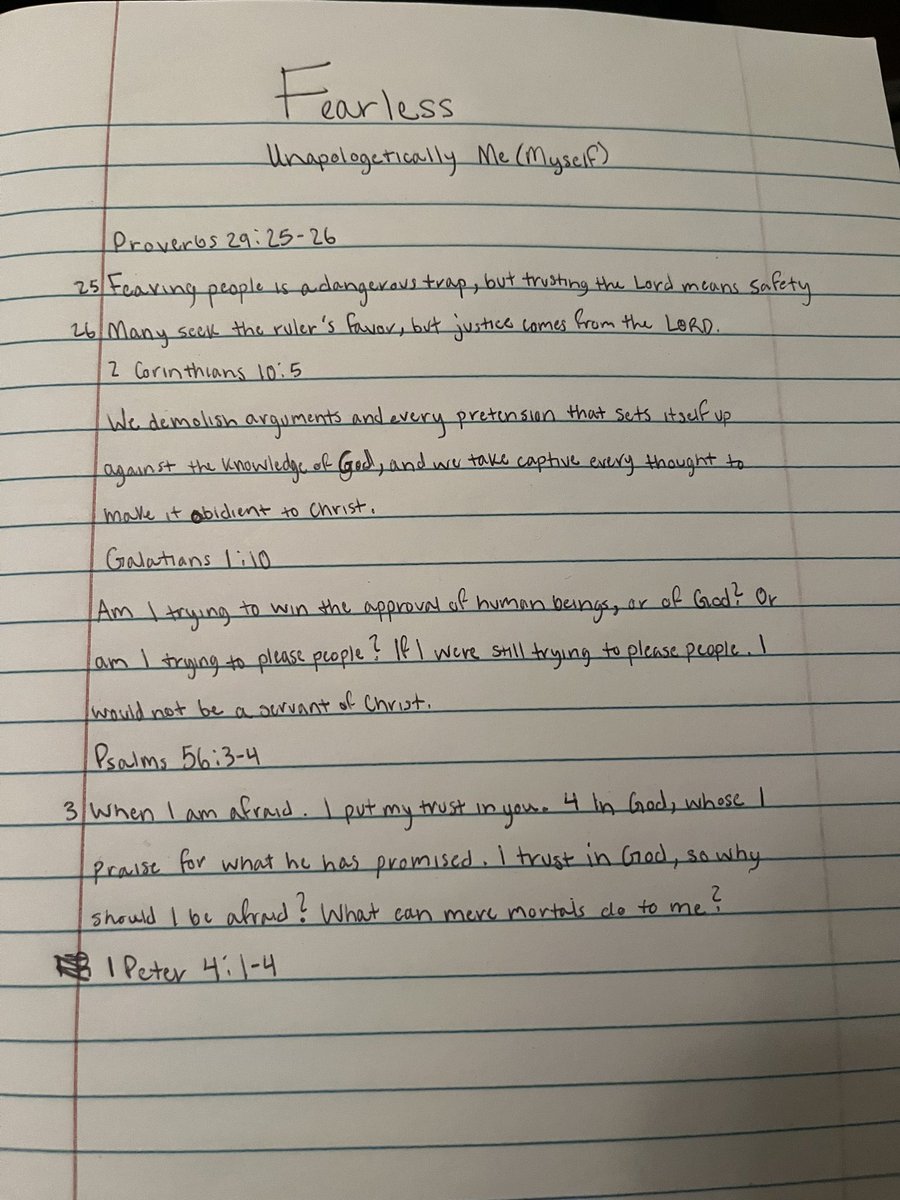 Fearless
Unapologetically Me (Myself)
Proverbs 29:25-26
25 Fearing people is a dangerous trap, but trusting the Lord means safety
26 Many seek the ruler's favor, but justice comes from the LORD.
2 Corinthians 10:5
We demolish arguments and every pretension that sets itself up
against the knowledge of God, and we take captive every thought to
make it obidient to Christ.
Galatians 1:10
Am I trying to win the approval of human beings, or of God? Or
am I trying to please people? If I were still trying to please people. I
would not be a servant of Christ.
Psalms 56:3-4
3 When I am afraid. I put my trust in you. 4 In God, whose I
praise for what he has promised. I trust in God, so why
should I be afraid? What can mere mortals do to me?
1 Peter 4:1-4